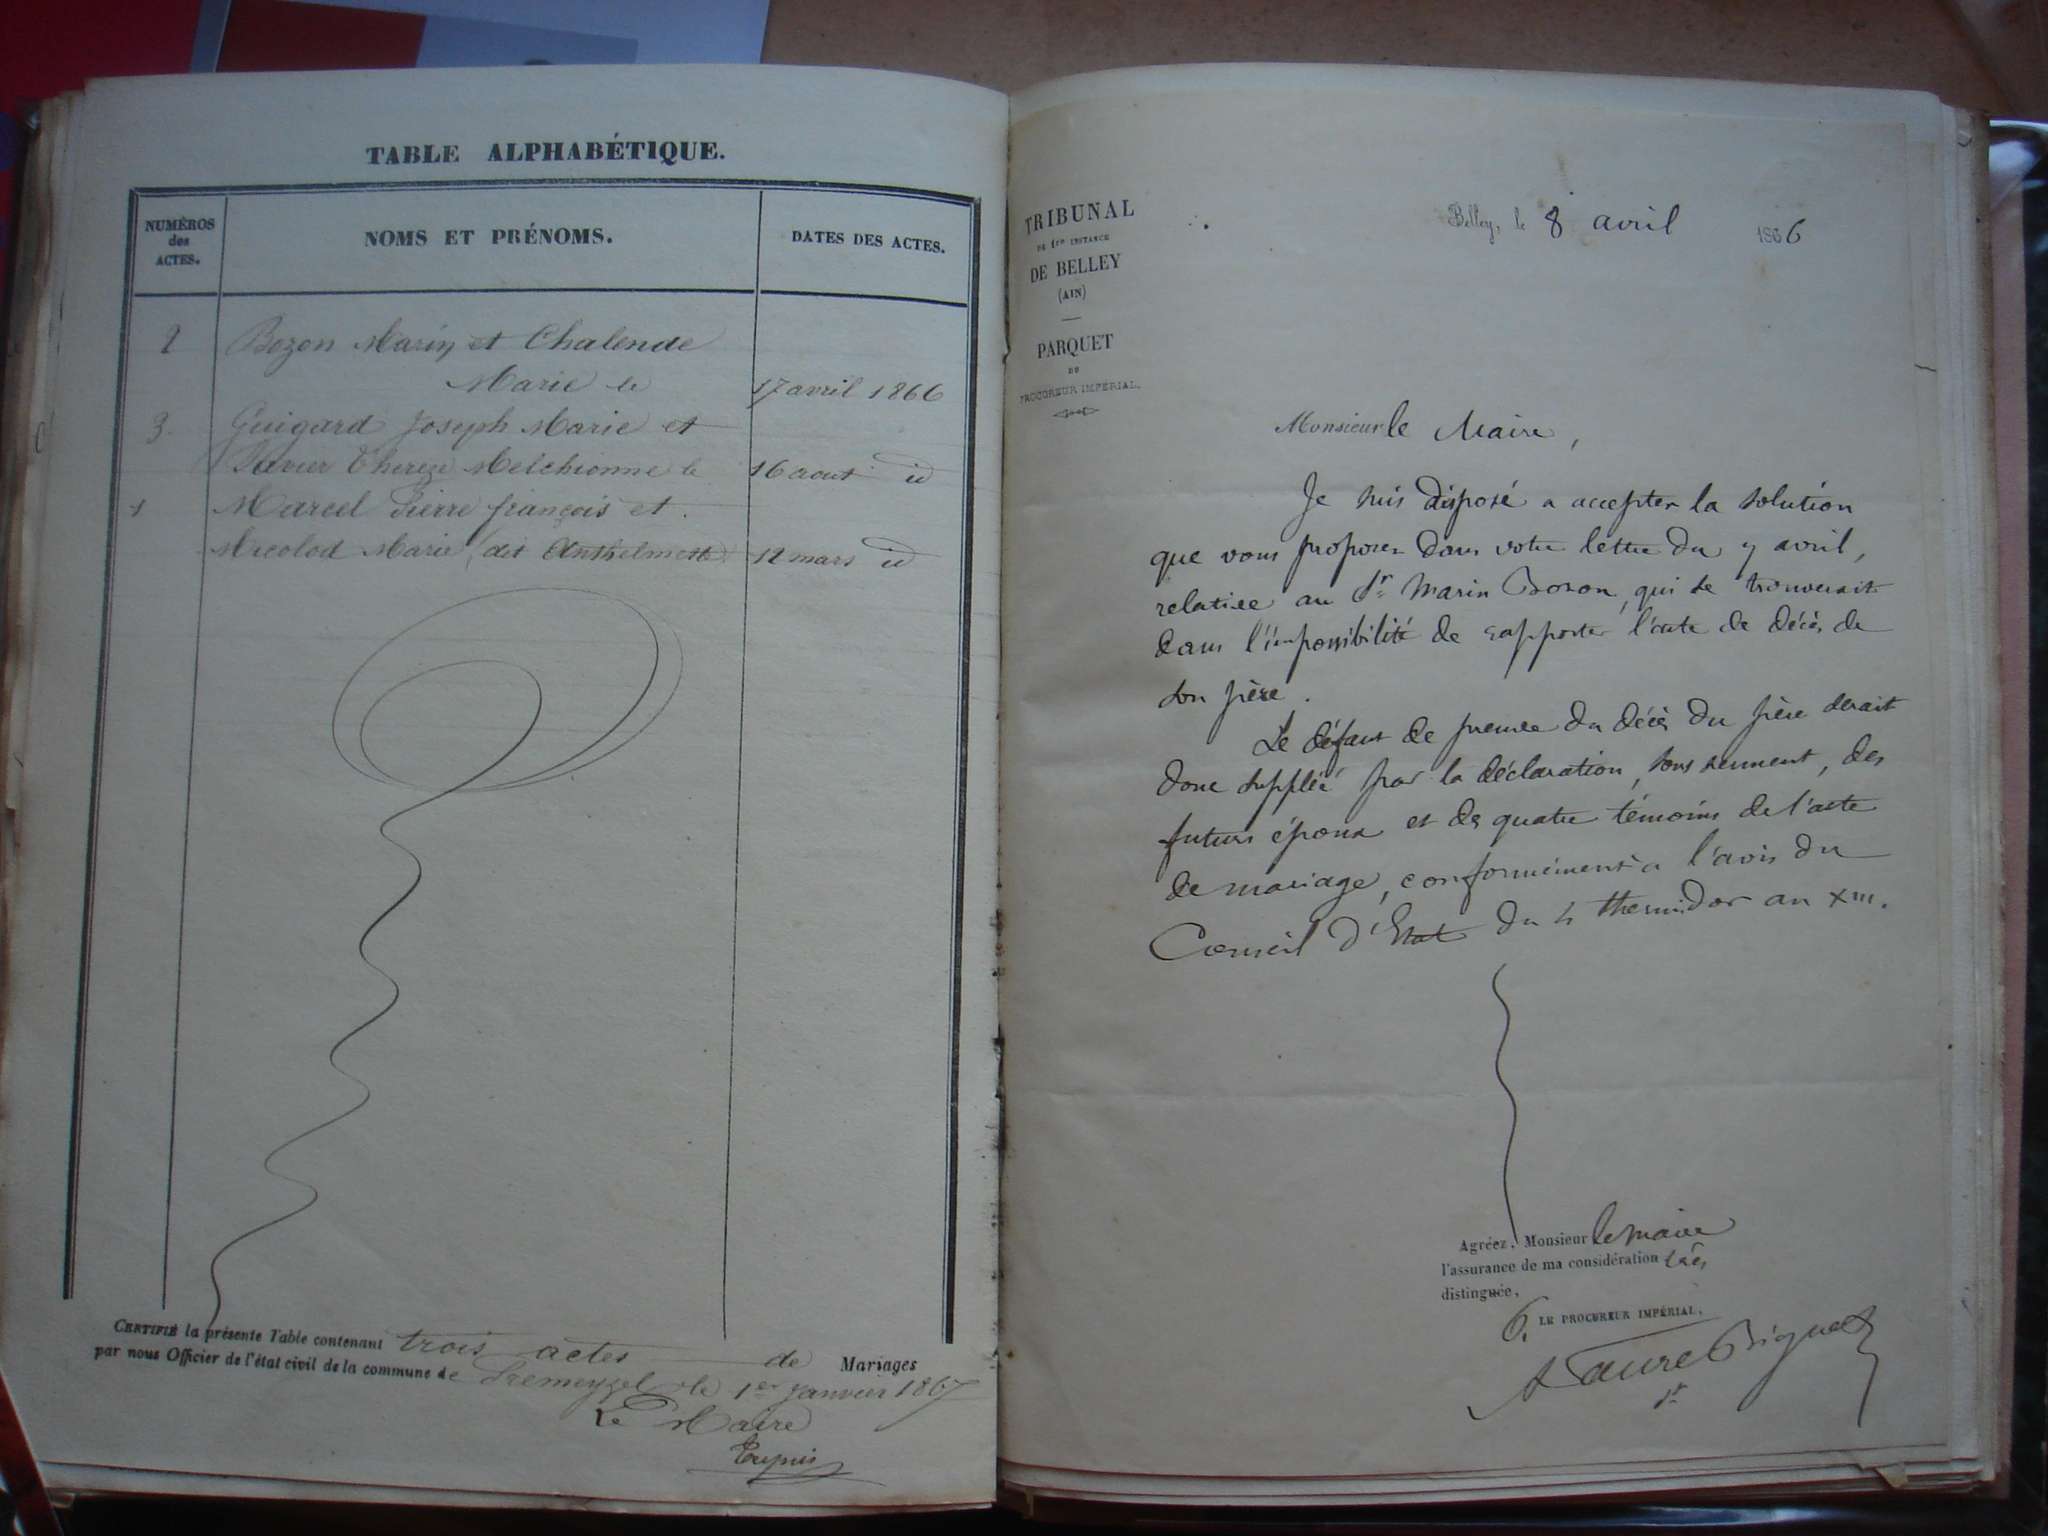 TABLE ALPHABÉTIQUE.
NUMÉROS
des
ACTES.
NOMS ET PRÉNOMS.
DATES DES ACTES.
2 Bozon Marin et Chalende
Marie le 17 avril 1866
3 Guigard Joseph Marie et
Melchionne le 16 aout id
1 Marcel Pierre françois et
Marie dit 12 mars id
CERTIFIÉ la présente Table contenant trois actes de Mariages
par nous Officier de l'état civil de la commune de Premeyzel le 1er Janvier 1867
Le Maire
TRIBUNAL
DE 1re INSTANCE
DE BELLEY
(AIN)
PARQUET
DU
PROCUREUR IMPÉRIAL.
Belley, le 8 avril 1866
Monsieur le Maire,
Je suis disposé a accepter la solution
que vous proposez dans votre lettre du 7 avril,
relative au Sr Marin Bozon, qui se trouverait
dans l'impossibilité de rapporter l'acte de décès de
son père.
Le défaut de preuve du décès du père serait
donc suppléé par la déclaration, sous serment, des
futurs époux et de quatre témoins de l'acte
de mariage, conformément a l'avis du
Conseil d'Etat du 4 thermidor an XIII.
Agréez, Monsieur le maire
l'assurance de ma considération très
distinguée.
LE PROCUREUR IMPÉRIAL.